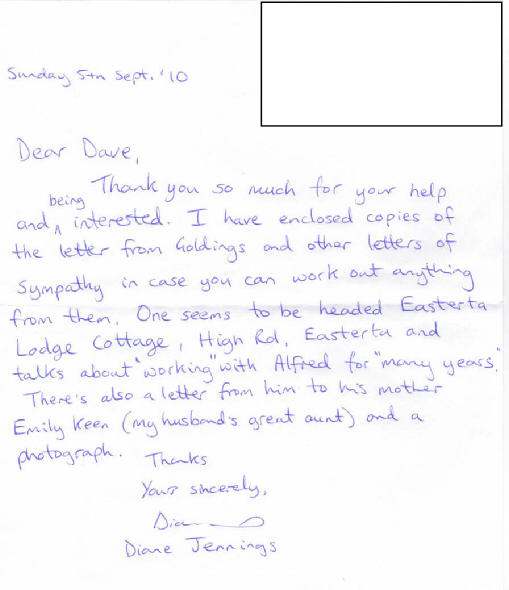 Sunday 5th Sept. '10
Dear Dave,
Thank you so much for your help
and ^being interested. I have enclosed copies of
the letter from Goldings and other letters of
Sympathy in case you can work out anything
from them. One seems to be headed Easterta
Lodge Cottage, High Rd, Easterta and
talks about "working" with Alfred for "many years."
There's also a letter from him to his mother
Emily Keen (my husband's great aunt) and a
photograph.
Thanks
Yours sincerely,
Diane Jennings